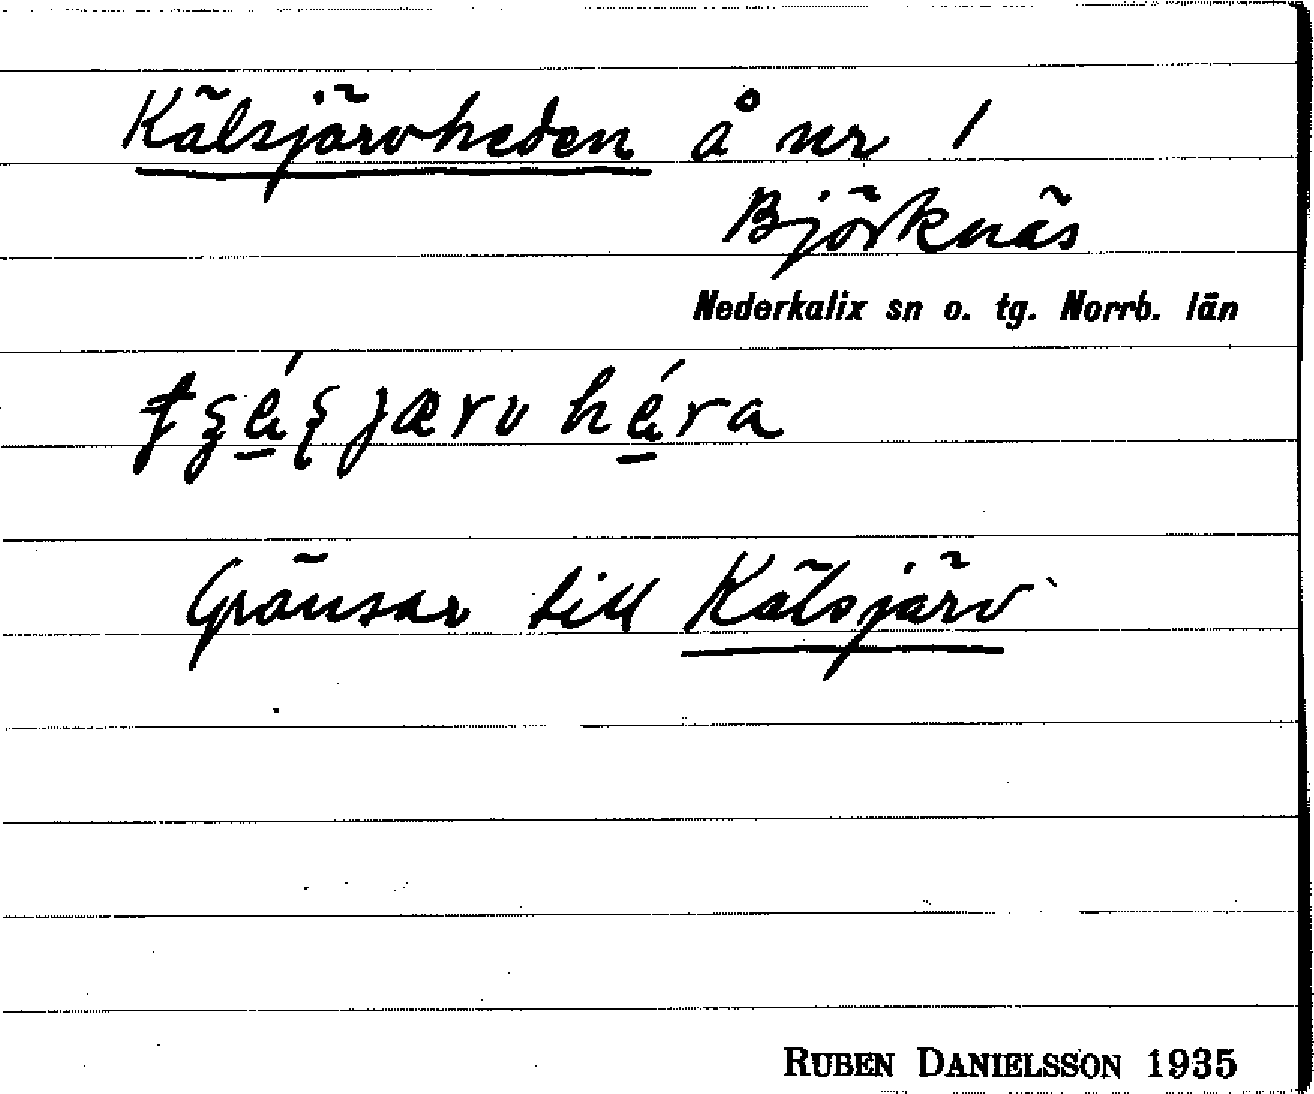 Kälsjärvheden å nr 1
Björknäs
Nederkalix sn o. tg. Norrb. län
Gränsar till Kälsjärv
RUBEN DANIELSSON 1935